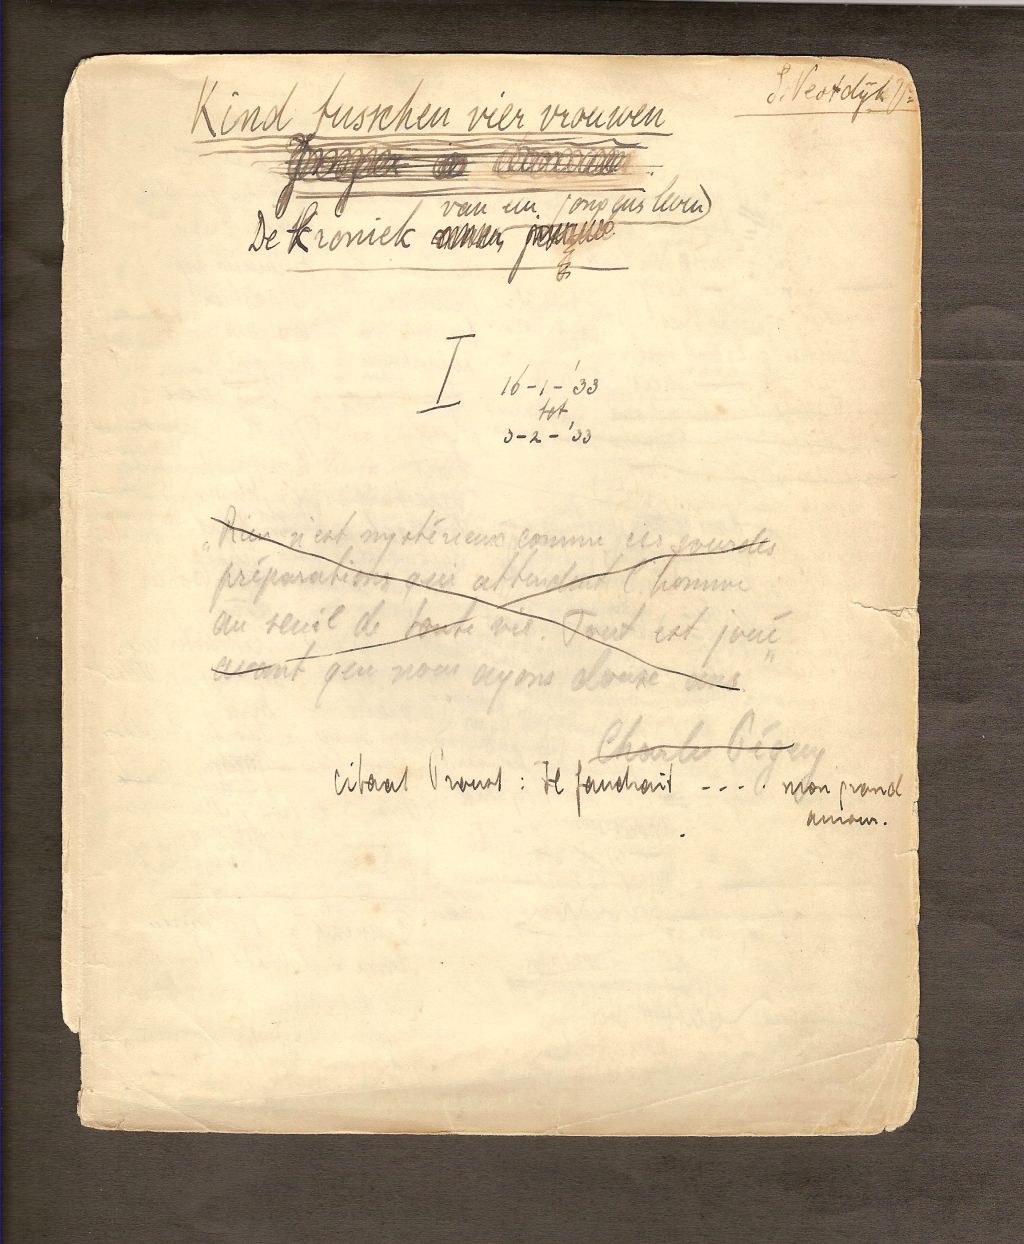 S. Vestdijk
Kind tusschen vier vrouwen
van een jongensleven)
De kroniek
I
16-1-'33
tot
3-2-'33
„Rien n'est mystérieux comme ces sourdes
préparations qui attendent l'homme
au seuil de toute vie. Tout est joué
avant que nous ayons douze ans"
Charles Péguy
citaat Proust: Il faudrait ---. mon grand
amour.